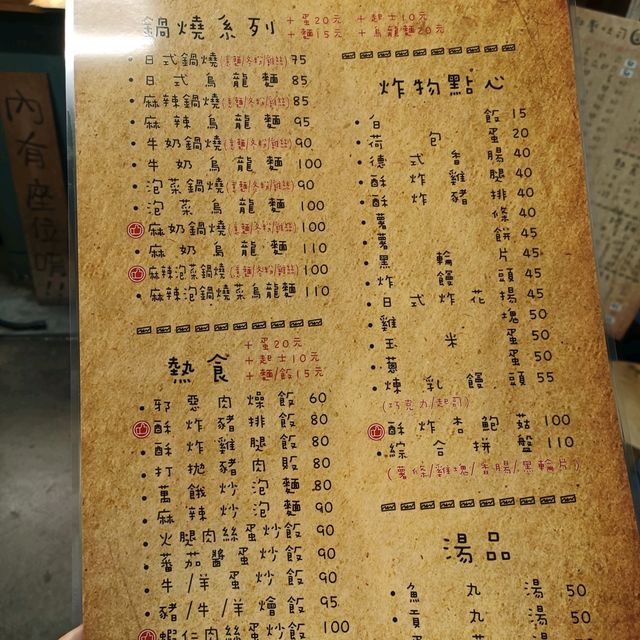 鍋燒系列 +蛋20元 +起士10元
+麵15元 +烏龍麵20元
日式鍋燒(意麵/冬粉/雞絲) 75
日式烏龍麵 85
麻辣鍋燒(意麵/冬粉/雞絲) 85
麻辣烏龍麵 95
牛奶鍋燒(意麵/冬粉/雞絲) 90
牛奶烏龍麵 100
泡菜鍋燒(意麵/冬粉/雞絲) 90
泡菜烏龍麵 100
麻奶鍋燒(意麵/冬粉/雞絲) 100
麻奶烏龍麵 110
麻辣泡菜鍋燒(意麵/冬粉/雞絲) 100
麻辣泡鍋燒菜烏龍麵 110
熱食
+蛋20元
+起士10元
+麵/飯15元
邪惡肉燥飯 60
酥炸豬排飯 80
酥炸雞腿飯 80
打拋豬肉飯 80
萬餓炒泡麵 80
麻辣炒泡麵 90
火腿肉絲蛋炒飯 90
蕃茄醬蛋炒飯 90
牛/羊蛋炒飯 90
豬/牛/羊燴飯 95
蝦仁肉絲蛋炒飯 100
炸物點心
白飯 15
荷包蛋 20
德式香腸 40
酥炸雞腿 40
酥炸豬排 40
薯條 40
薯餅 45
黑輪片 45
炸饅頭 45
日式炸花 45
雞塊 50
玉米蛋 50
蔥蛋 50
煉乳饅頭 55
(巧克力/起司)
酥炸杏鮑菇 100
綜合拼盤 110
(薯條/雞塊/香腸/黑輪片)
湯品
魚丸湯 50
貢丸湯 50
50
內有座位唷!!